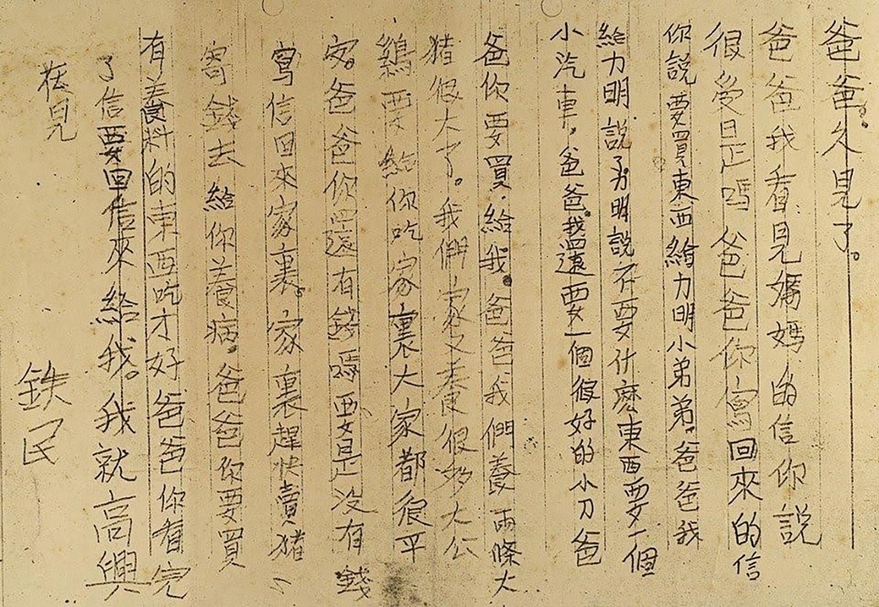 爸爸久見了。
爸爸我看見媽媽的信你說
很受是嗎爸爸你寫回來的信
你說要買東西給力明小弟弟。爸爸我
給力明說了力明說不要什麼東西要一個
小汽車。爸爸。我還要一個很好的小刀爸
爸你要買給我。爸爸我們養兩條大
猪很大了。我們家又養很多大公
鷄要給你吃家裏大家都很平
安。爸爸你還有錢嗎要是沒有錢
寫信回來家裏。家裏趕快賣猪
寄錢去給你養病。爸爸你要買
有養料的東西吃才好爸爸你看完
了信要回信來給我。我就高興
在見
鉄民